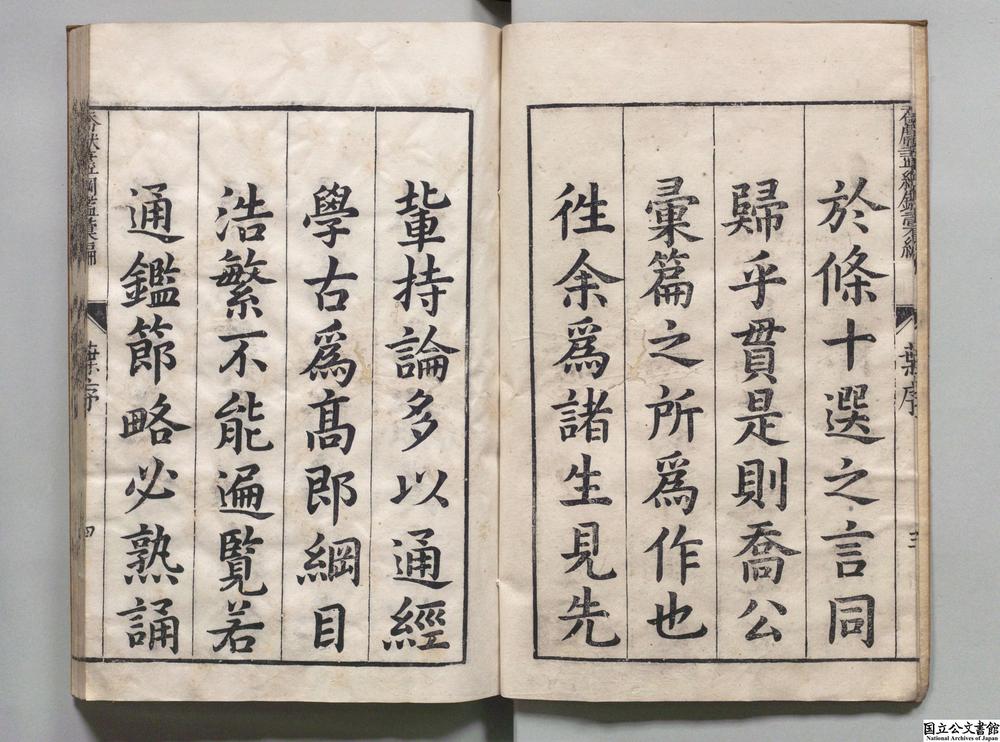 於條十選之言同
歸乎貫是則喬公
彚篇之所爲作也
徃余爲諸生見先
葉序
三
軰持論多以通經
學古爲髙即綱目
浩繁不能遍覽若
通鑑節略必熟誦
葉序
四
国立公文書館
National Archives of Japan